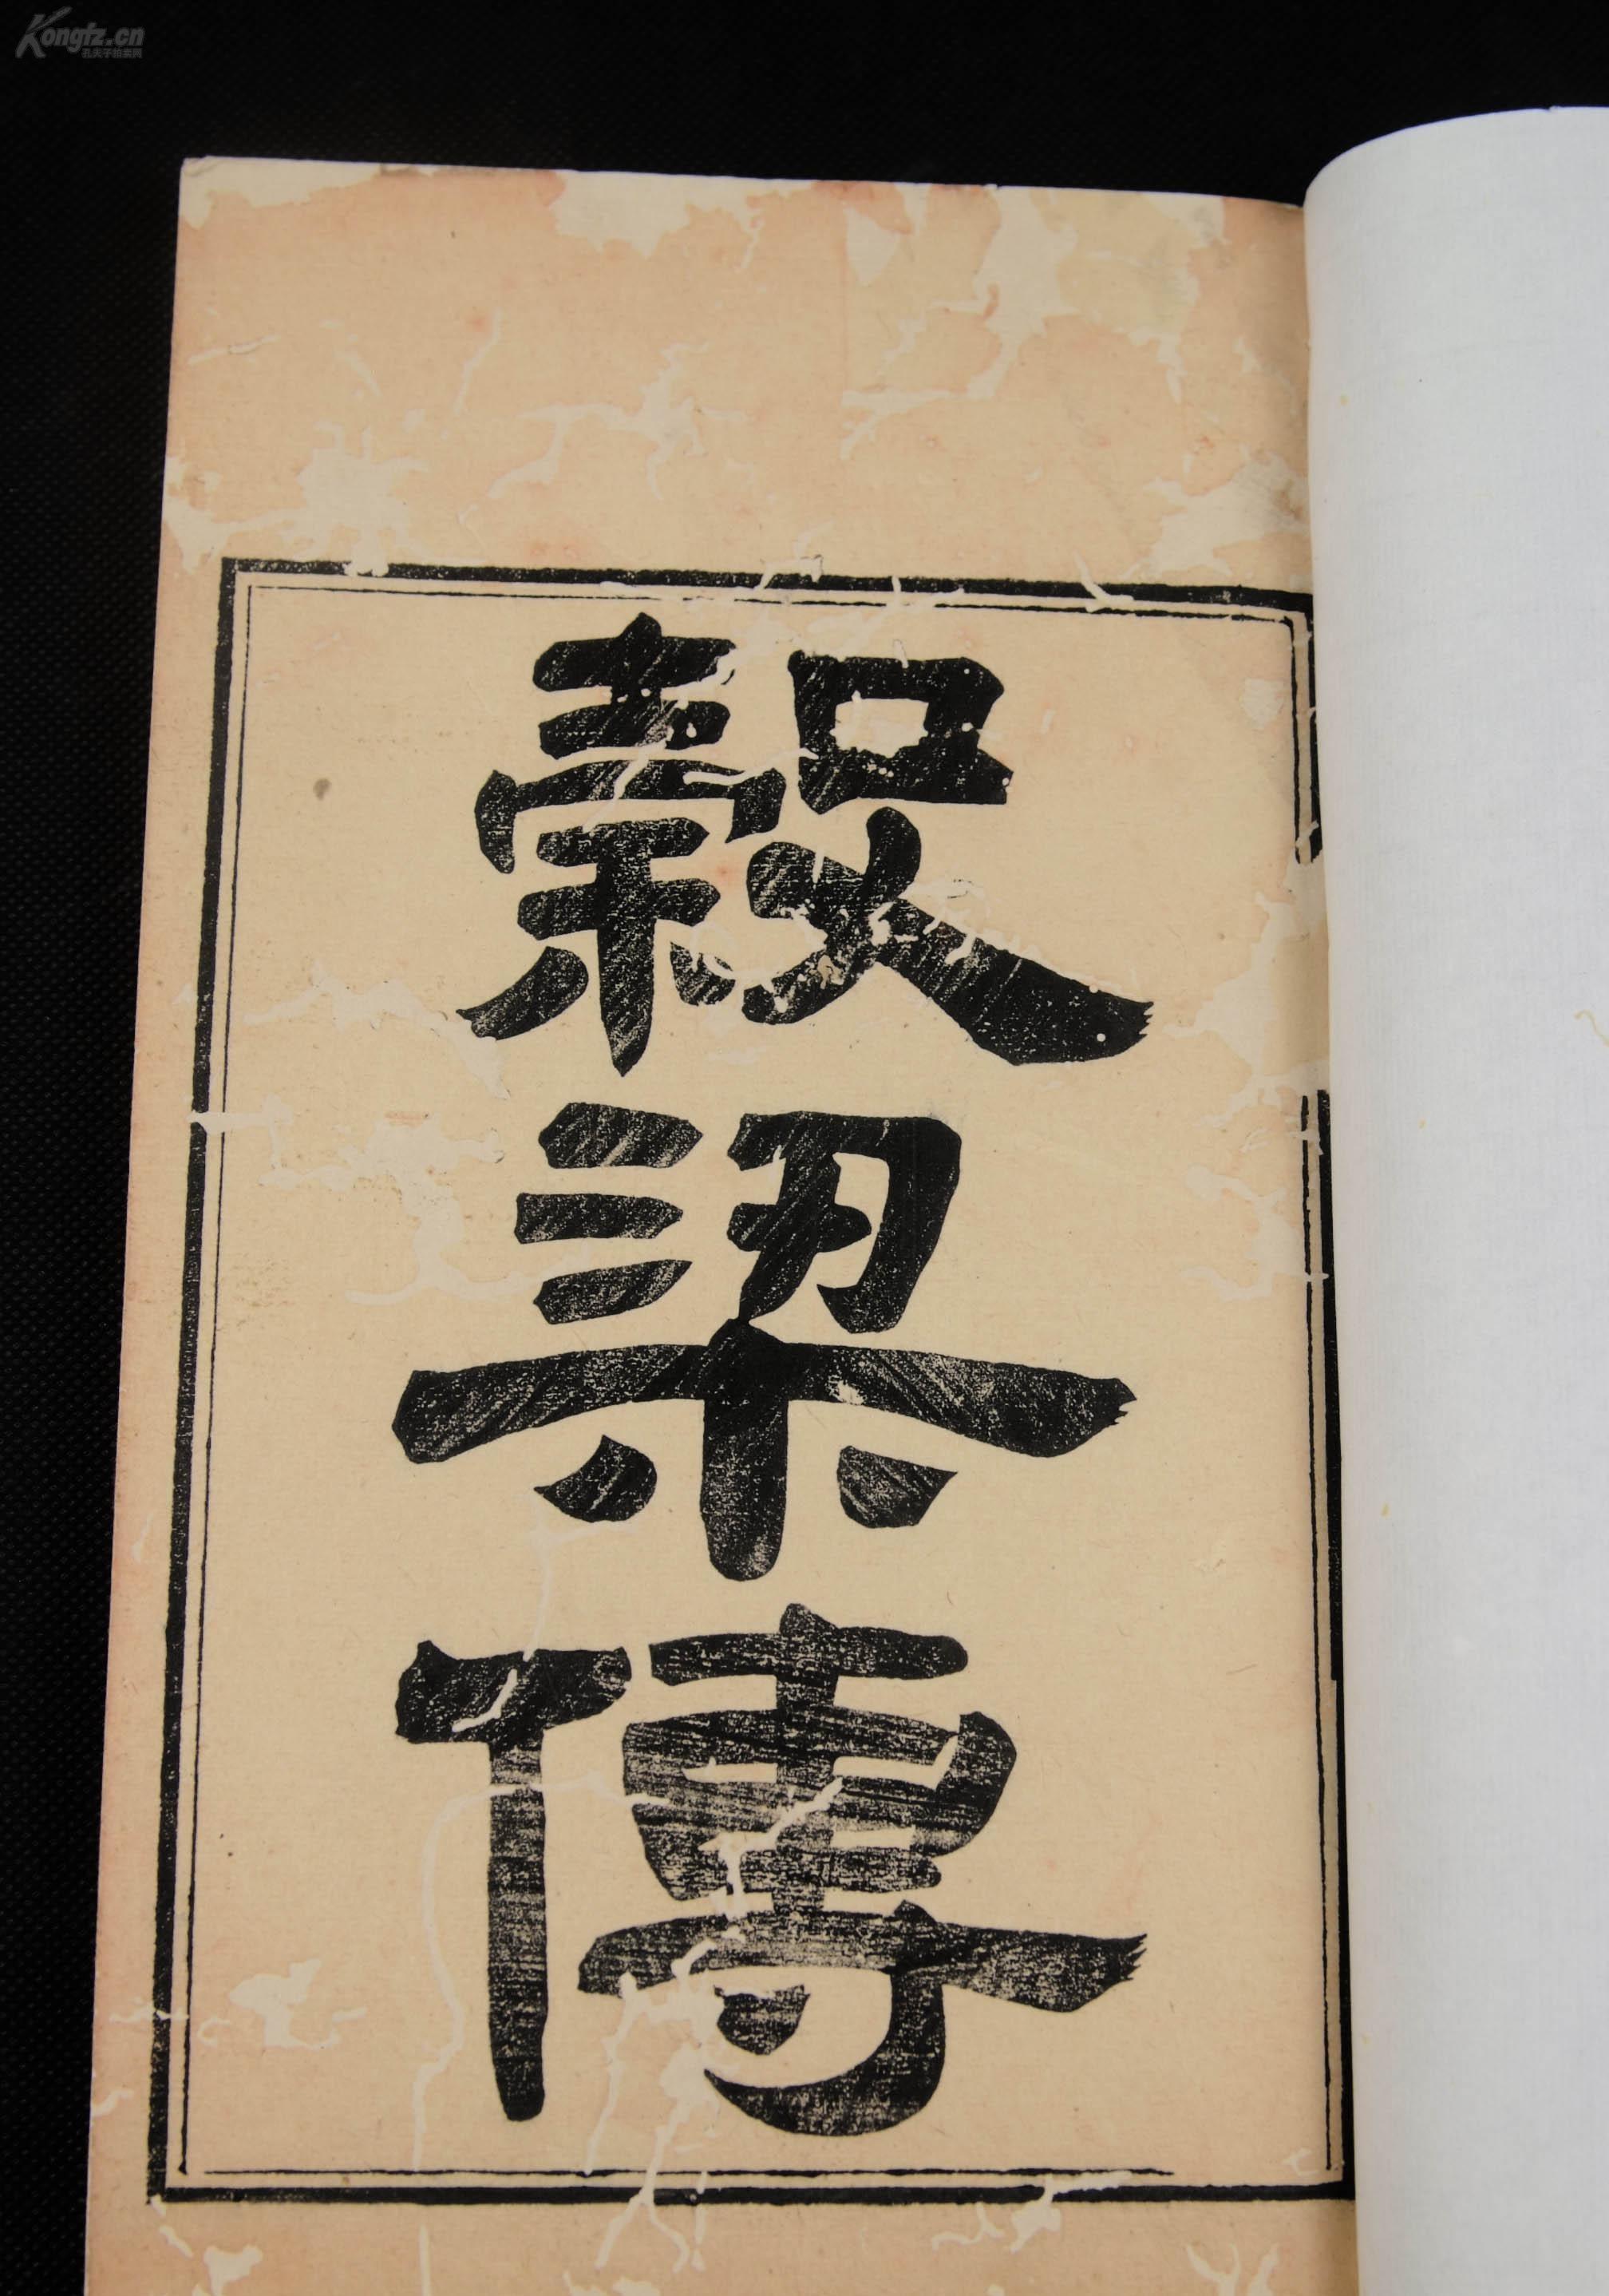 Kongfz.cn
孔夫子拍卖网
穀梁傳